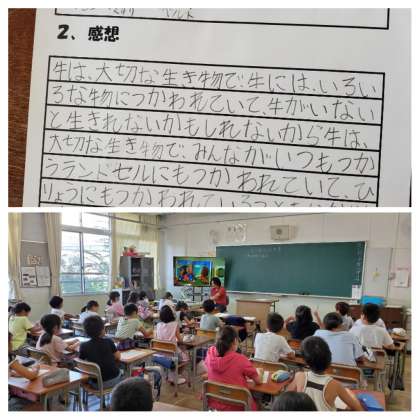 ベルト
2、感想
牛は、大切な生き物で、牛には、いろい
ろな物につかわれていて、牛がいない
と生きれないかもしれないから牛は、
大切な生き物で、みんながいつもつか
うランドセルにもつかわれていて、ひ
りょうにもつかわれている